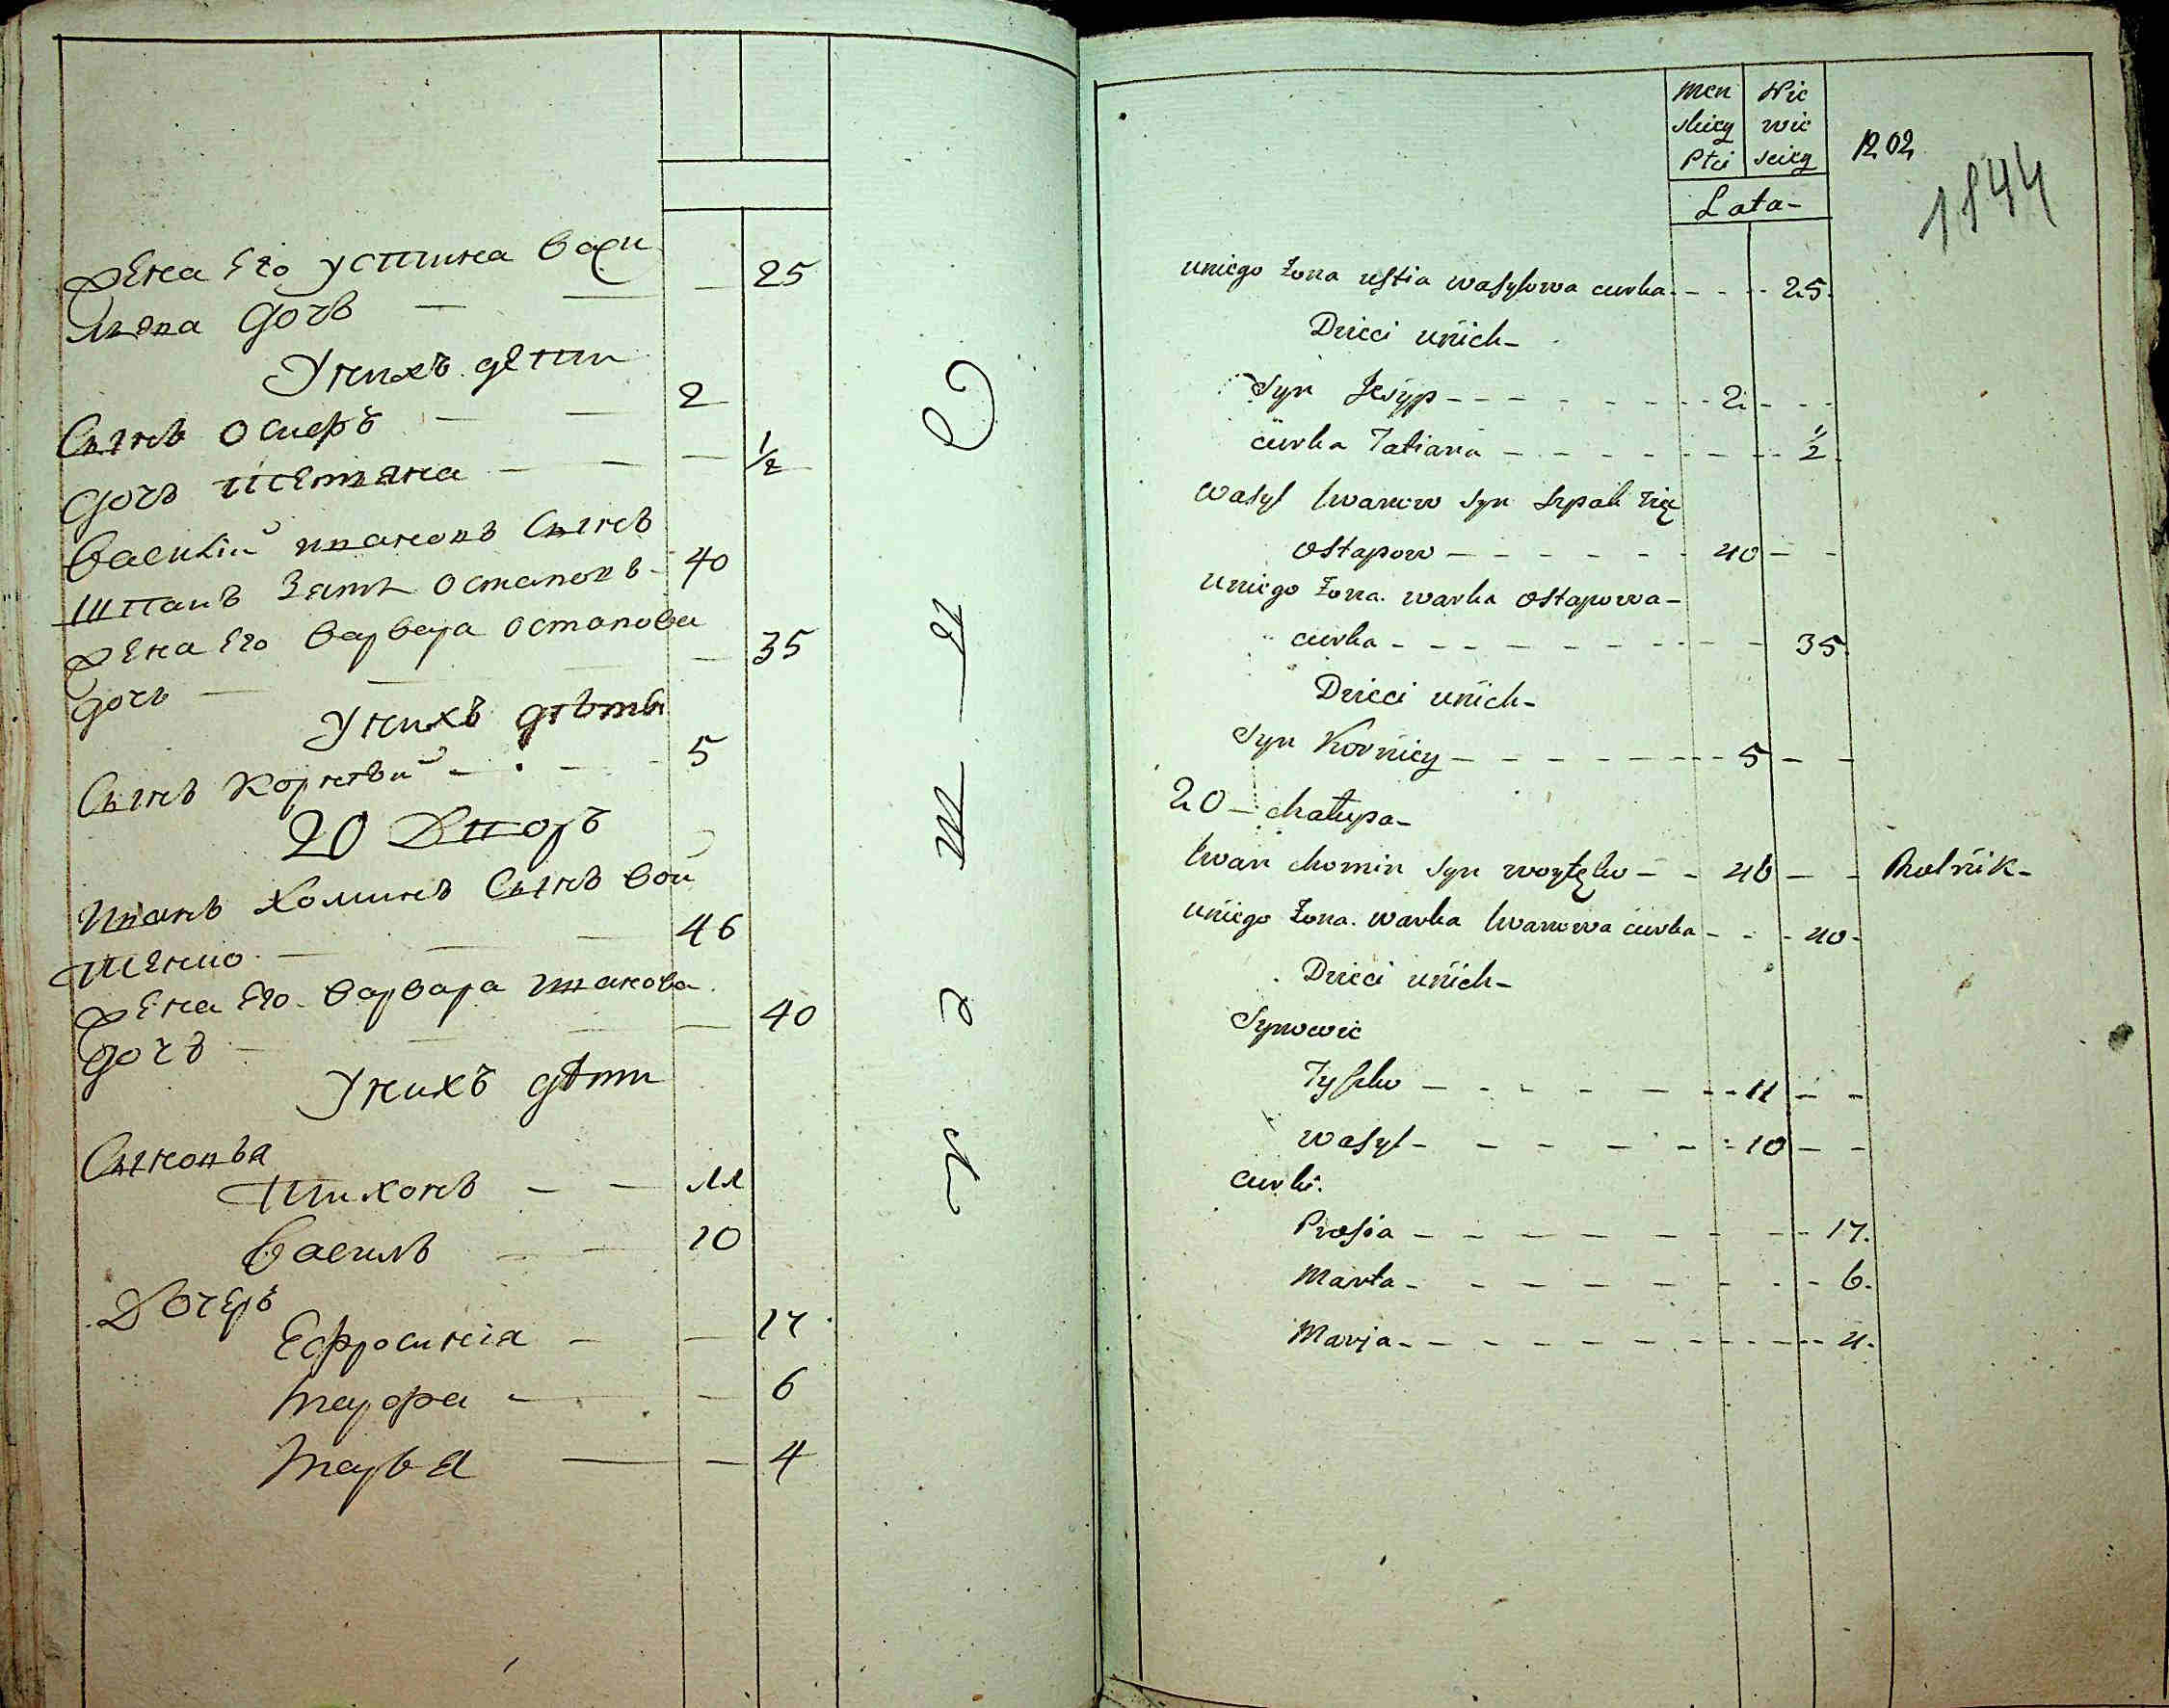 жена Его устина васи
лѣва дочь — — — 25
У нихъ дети
Сынъ осифъ — — 2
дочь тетяна — — — 1/2
василий ивановъ Сынъ
шпакъ зять остаповъ - 40
жена Его варвара остапова
дочь — — — — 35
У нихъ дѣти
Сынъ корнѣй - - - 5
20 Дворъ
Иванъ хоминъ Сынъ вой
тенко — — — 46
жена Его варвара иванова
дочь — — — — 40
У нихъ дѣти
Сыновья
тихонъ — — 11
василь — — 10
Дочерѣ
Ефросинія — — 17
марфа — — 6
марья — — 4
men Nie
skiey wie
Płci sciey
Lata-
1202
1844
uniego żona ustia wasylowa curka - - - - 25
Dzieci unich-
Syn Jesyp - - - - - - - - 2 - - -
curka Tatiana - - - - - - - - 1/2
wasyl Iwanow syn Szpak zięć
Ostapow - - - - - - 40 - -
uniego żona warka Ostapowa-
curka - - - - - - - - - 35
Dzieci unich-
Syn Korniey - - - - - - - - 5 - -
20 - chałupa-
Iwan chomin syn woytęko - - 46 - - Rolnik-
uniego żona warka Iwanowa curka - - - 40-
Dzieci unich-
Synowie
Tyszko - - - - - - - 11 - -
wasyl - - - - - - - 10 - -
curki.
Prosia - - - - - - - - - 17.
Marta - - - - - - - - - 6.
Marja - - - - - - - - - - 4.